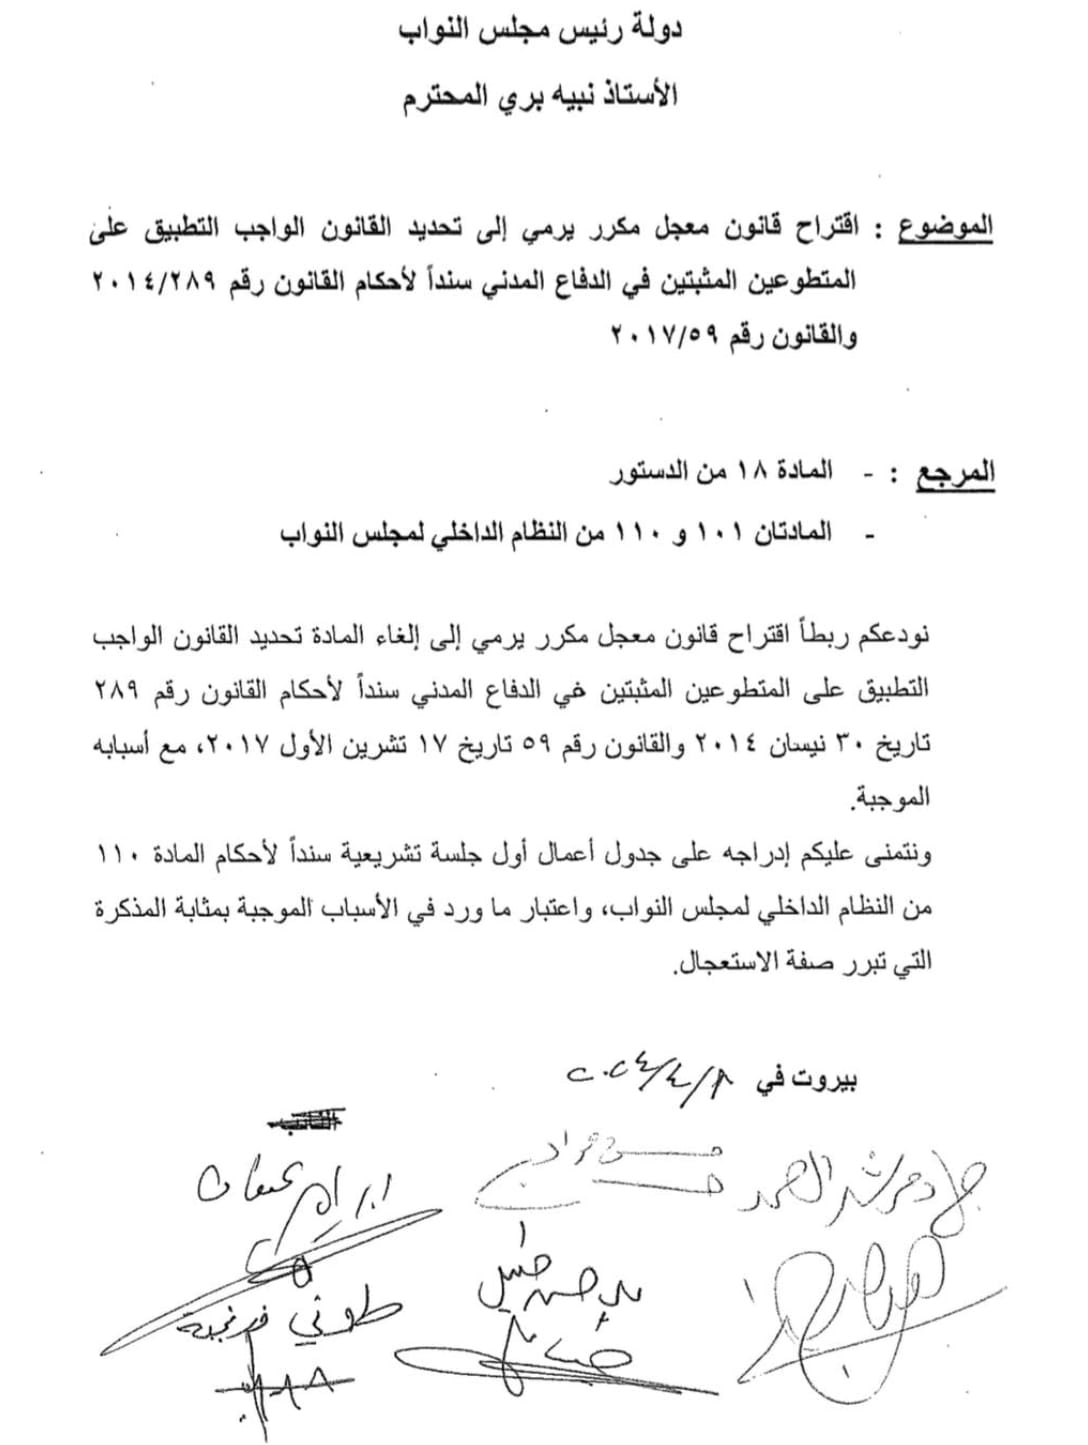 دولة رئيس مجلس النواب
الأستاذ نبيه بري المحترم
الموضوع : اقتراح قانون معجل مكرر يرمي إلى تحديد القانون الواجب التطبيق على
المتطوعين المثبتين في الدفاع المدني سنداً لأحكام القانون رقم ٢٠١٤/٢٨٩
والقانون رقم ٢٠١٧/٥٩
المرجع : - المادة ١٨ من الدستور
- المادتان ١٠١ و ١١٠ من النظام الداخلي لمجلس النواب
نودعكم ربطاً اقتراح قانون معجل مكرر يرمي إلى إلغاء المادة تحديد القانون الواجب
التطبيق على المتطوعين المثبتين في الدفاع المدني سنداً لأحكام القانون رقم ٢٨٩
تاريخ ٣٠ نيسان ٢٠١٤ والقانون رقم ٥٩ تاريخ ١٧ تشرين الأول ٢٠١٧، مع أسبابه
الموجبة.
ونتمنى عليكم إدراجه على جدول أعمال أول جلسة تشريعية سنداً لأحكام المادة ١١٠
من النظام الداخلي لمجلس النواب، واعتبار ما ورد في الأسباب الموجبة بمثابة المذكرة
التي تبرر صفة الاستعجال.
بيروت في
حسن مراد
طوني فرنجية